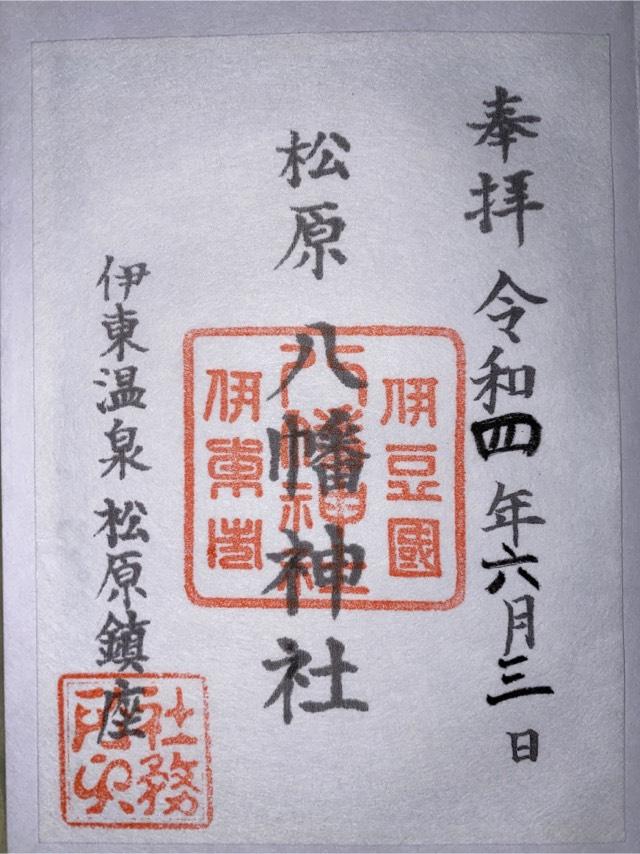 奉拝 令和四年六月三日
松原八幡神社
伊東温泉 松原鎮座
伊豆國
八幡神社
伊東市
社務